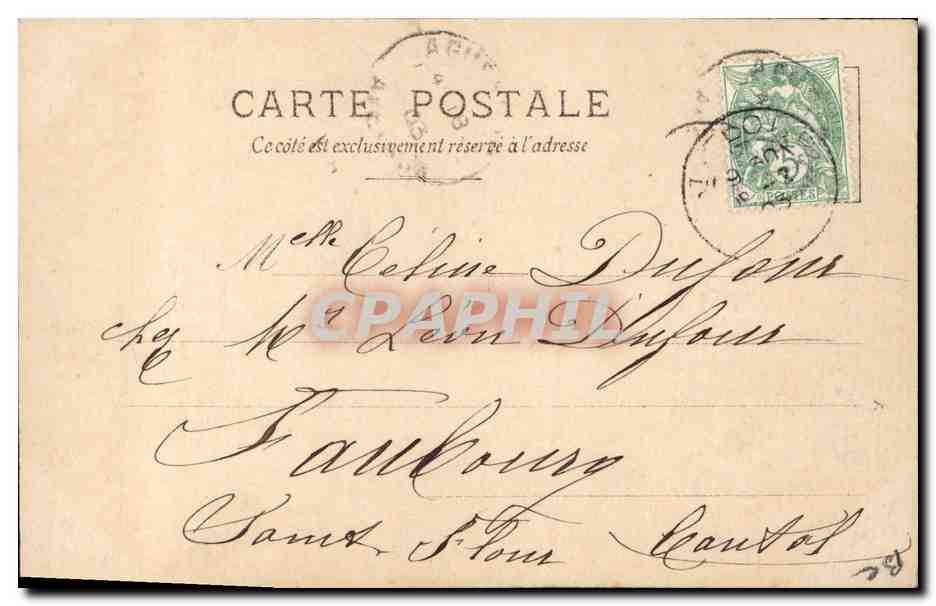 CARTE POSTALE
Ce côté est exclusivement réservé à l'adresse
5
POSTES
Melle Céline Dufour
chez Mr Léon Dufour
CPAPHIL
Faubourg
Saint Flour Cantal